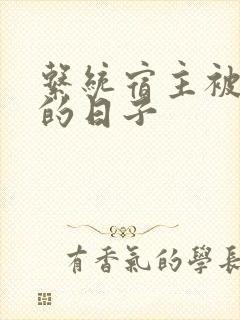 繫統宿主被
的日子
有香氣的學長